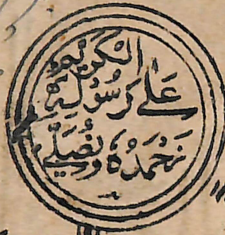 الكريم
على رسوله
نحمده ونصلي